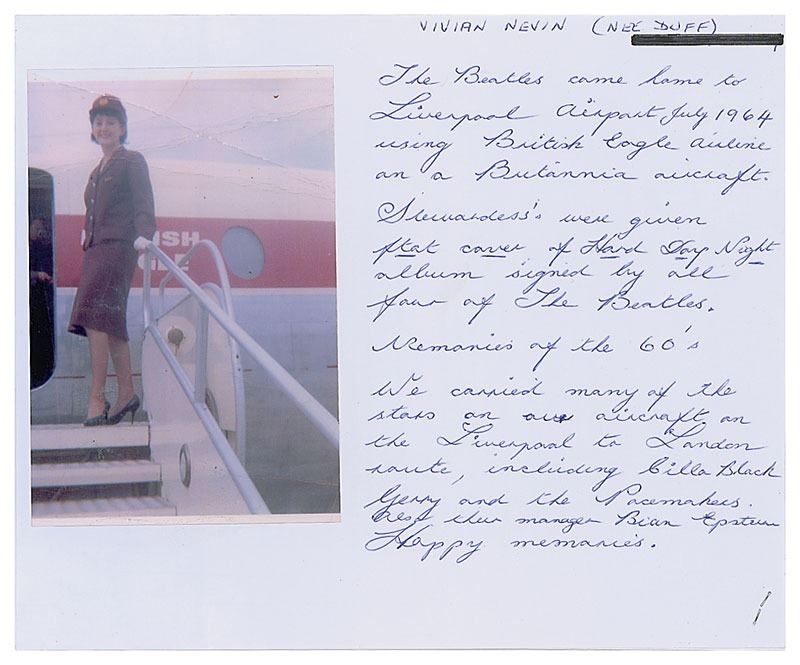 VIVIAN NEVIN (NEE DUFF)
The Beatles came home to
Liverpool Airport July 1964
using British Eagle airline
on a Britannia aircraft.
Stewardess's were given
flat cover of Hard Day Night
album signed by all
four of The Beatles.
Memories of the 60's
We carried many of the
stars on our aircraft on
the Liverpool to London
route, including Cilla Black
Gerry and the Pacemakers.
their manager Brian Epstein
Happy memories.
ISH